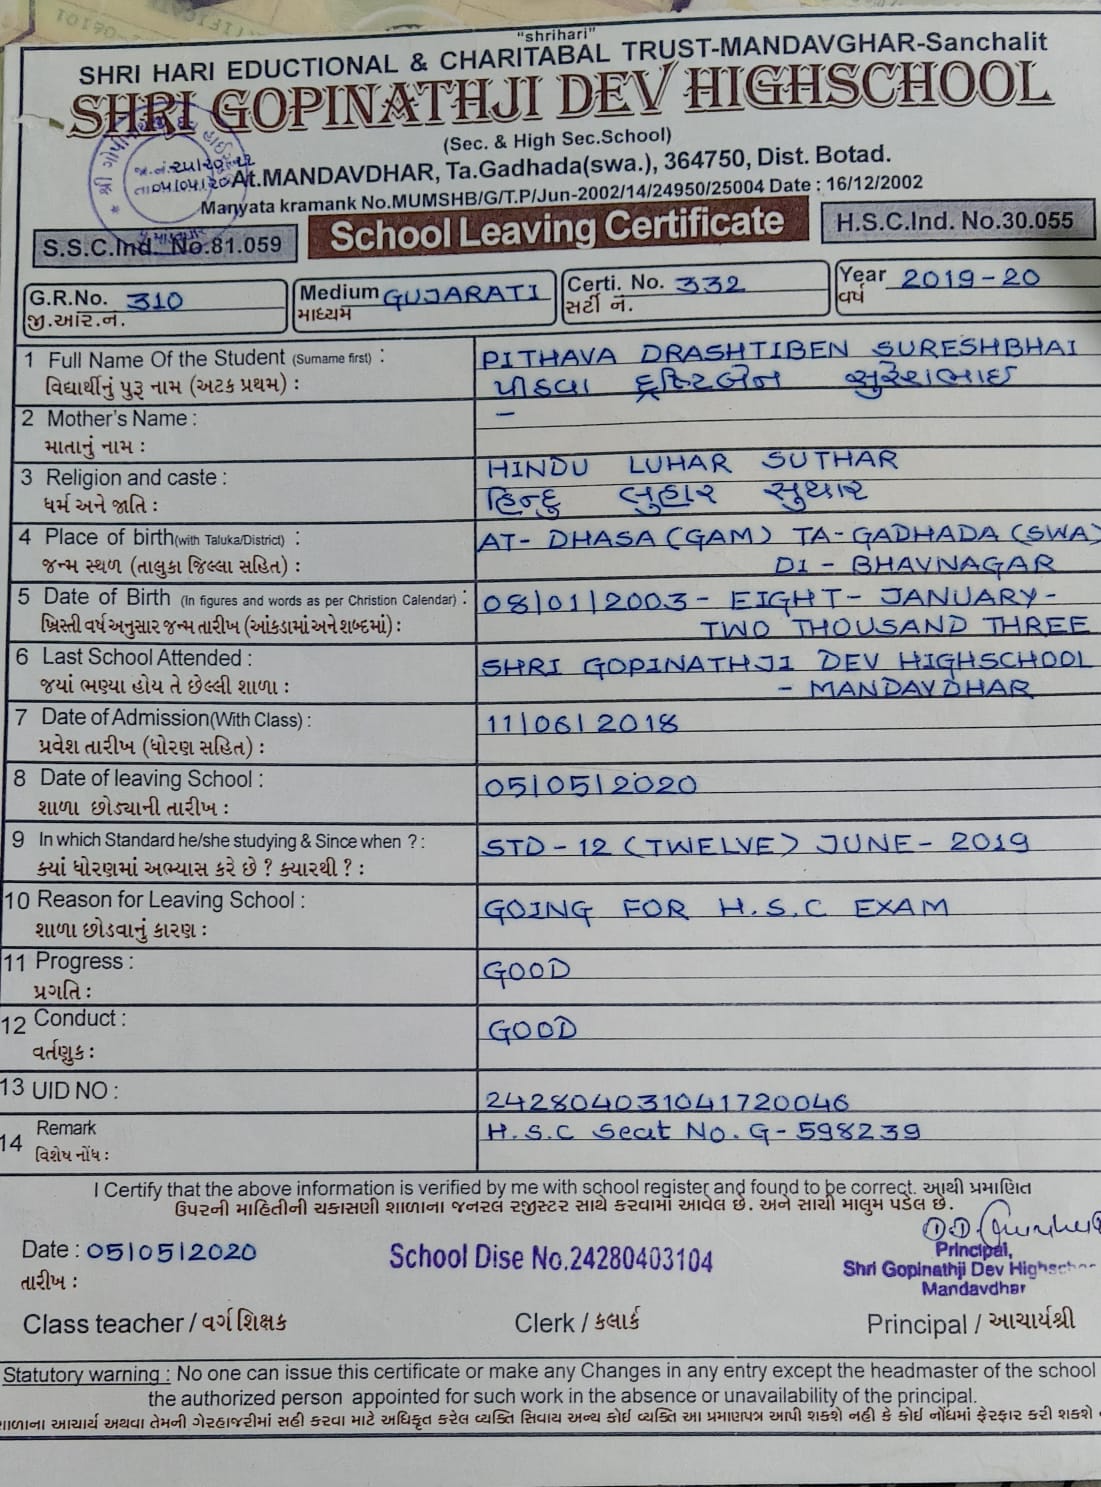 "shrihari"
SHRI HARI EDUCTIONAL & CHARITABAL TRUST-MANDAVGHAR-Sanchalit
SHRI GOPINATHJI DEV HIGHSCHOOL
(Sec. & High Sec.School)
At.MANDAVDHAR, Ta.Gadhada(swa.), 364750, Dist. Botad.
Manyata kramank No.MUMSHB/G/T.P/Jun-2002/14/24950/25004 Date : 16/12/2002
S.S.C.Ind. No.81.059
School Leaving Certificate
H.S.C.Ind. No.30.055
G.R.No. 310
જી.આર.નં.
Medium GUJARATI
માધ્યમ
Certi. No. 332
સર્ટી નં.
Year 2019-20
વર્ષ
1 Full Name Of the Student (Surname first) : PITHAVA DRASHTIBEN SURESHBHAI
વિદ્યાર્થીનું પુરૂ નામ (અટક પ્રથમ) : પીઠવા દ્રષ્ટિબેન સુરેશભાઇ
2 Mother's Name : –
માતાનું નામ :
3 Religion and caste : HINDU LUHAR SUTHAR
ધર્મ અને જાતિ : હિન્દુ લુહાર સુથાર
4 Place of birth(with Taluka/District) : AT- DHASA (GAM) TA-GADHADA (SWA)
જન્મ સ્થળ (તાલુકા જિલ્લા સહિત) : DI - BHAVNAGAR
5 Date of Birth (In figures and words as per Christion Calendar) : 08/01/2003 - EIGHT - JANUARY -
ખ્રિસ્તી વર્ષ અનુસાર જન્મ તારીખ (આંકડામાં અને શબ્દમાં) : TWO THOUSAND THREE
6 Last School Attended : SHRI GOPINATHJI DEV HIGHSCHOOL
જયાં ભણ્યા હોય તે છેલ્લી શાળા : - MANDAVDHAR
7 Date of Admission(With Class) : 11/06/2018
પ્રવેશ તારીખ (ધોરણ સહિત) :
8 Date of leaving School : 05/05/2020
શાળા છોડ્યાની તારીખ :
9 In which Standard he/she studying & Since when ? : STD - 12 (TWELVE) JUNE - 2019
ક્યાં ધોરણમાં અભ્યાસ કરે છે ? ક્યારથી ? :
10 Reason for Leaving School : GOING FOR H.S.C EXAM
શાળા છોડવાનું કારણ :
11 Progress : GOOD
પ્રગતિ :
12 Conduct : GOOD
વર્તણુક :
13 UID NO : 242804031041720046
14 Remark H.S.C Seat No. G-598239
વિશેષ નોંધ :
I Certify that the above information is verified by me with school register and found to be correct. આથી પ્રમાણિત
ઉપરની માહિતીની ચકાસણી શાળાના જનરલ રજીસ્ટર સાથે કરવામાં આવેલ છે. અને સાચી માલુમ પડેલ છે.
Date : 05/05/2020
તારીખ :
School Dise No.24280403104
Principal,
Shri Gopinathji Dev Highschool
Mandavdhar
Class teacher / વર્ગ શિક્ષક
Clerk / કલાર્ક
Principal / આચાર્યશ્રી
Statutory warning : No one can issue this certificate or make any Changes in any entry except the headmaster of the school
the authorized person appointed for such work in the absence or unavailability of the principal.
શાળાના આચાર્ય અથવા તેમની ગેરહાજરીમાં સહી કરવા માટે અધિકૃત કરેલ વ્યક્તિ સિવાય અન્ય કોઈ વ્યક્તિ આ પ્રમાણપત્ર આપી શકશે નહી કે કોઈ નોંધમાં ફેરફાર કરી શકશે